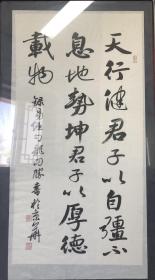 天行健君子以自彊不
息地势坤君子以厚德
載物